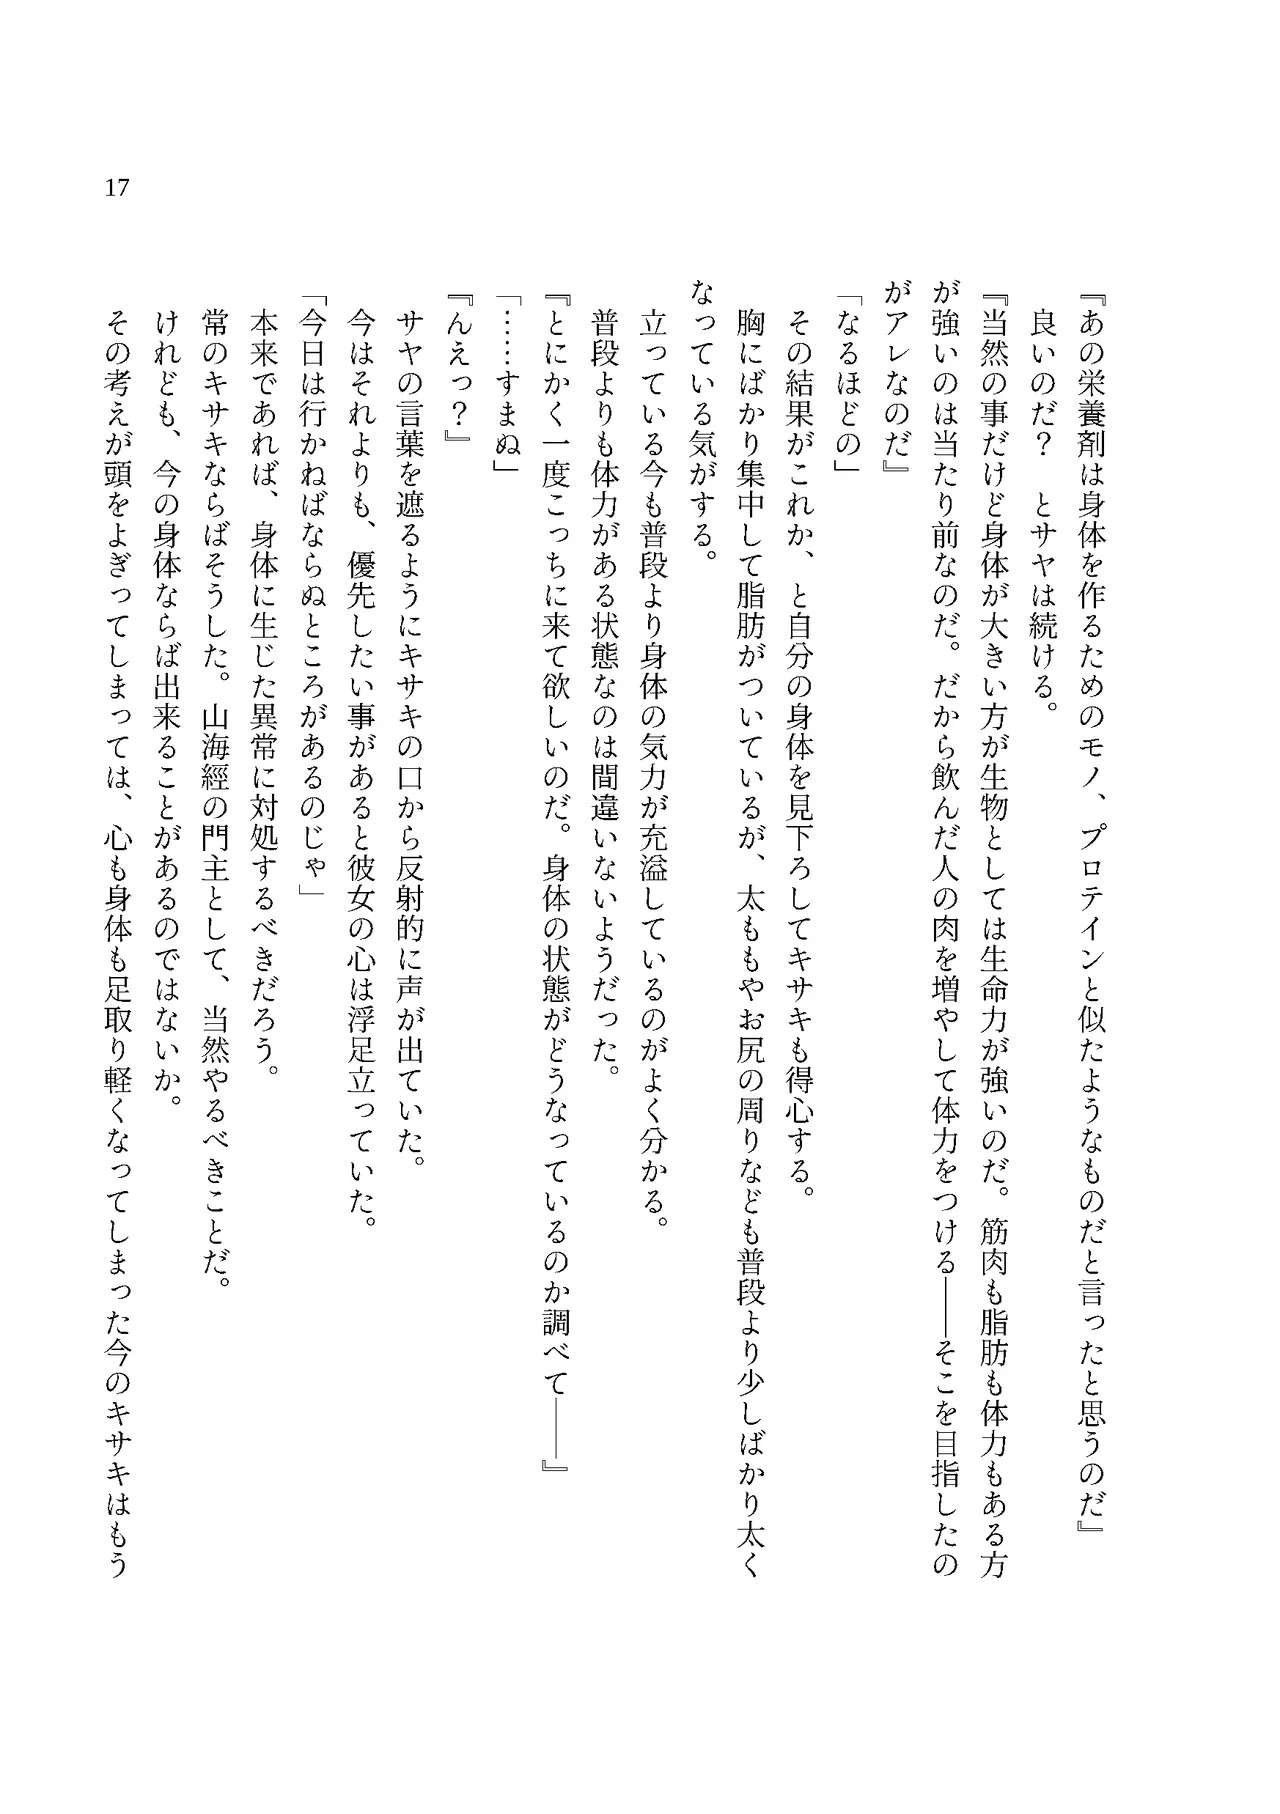 『あの栄養剤は身体を作るためのモノ、プロテインと似たようなものだと言ったと思うのだ』
良いのだ？　とサヤは続ける。
『当然の事だけど身体が大きい方が生物としては生命力が強いのだ。筋肉も脂肪も体力もある方
が強いのは当たり前なのだ。だから飲んだ人の肉を増やして体力をつける――そこを目指したの
がアレなのだ』
「なるほどの」
その結果がこれか、と自分の身体を見下ろしてキサキも得心する。
胸にばかり集中して脂肪がついているが、太ももやお尻の周りなども普段より少しばかり太く
なっている気がする。
立っている今も普段より身体の気力が充溢しているのがよく分かる。
普段よりも体力がある状態なのは間違いないようだった。
『とにかく一度こっちに来て欲しいのだ。身体の状態がどうなっているのか調べて――』
「……すまぬ」
『んえっ？』
サヤの言葉を遮るようにキサキの口から反射的に声が出ていた。
今はそれよりも、優先したい事があると彼女の心は浮足立っていた。
「今日は行かねばならぬところがあるのじゃ」
本来であれば、身体に生じた異常に対処するべきだろう。
常のキサキならばそうした。山海經の門主として、当然やるべきことだ。
けれども、今の身体ならば出来ることがあるのではないか。
その考えが頭をよぎってしまっては、心も身体も足取り軽くなってしまった今のキサキはもう
17